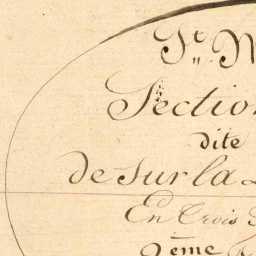 Section
dite
de Sur la
En trois
2ème